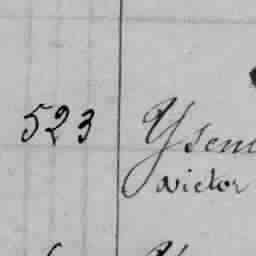 523 Ysem
Victor